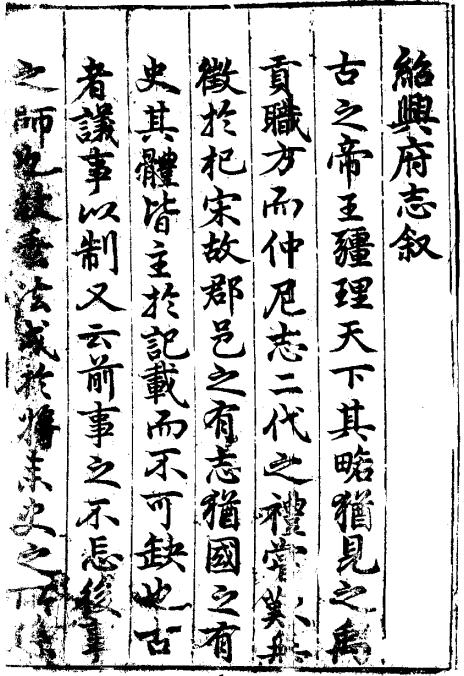 紹興府志叙
古之帝王疆理天下其畧猶見之禹
貢職方而仲尼志二代之禮嘗歎無
徵於杞宋故郡邑之有志猶國之有
史其體皆主於記載而不可缺也古
者議事以制又云前事之不忘後事
之師也故垂法戒於將来史之所